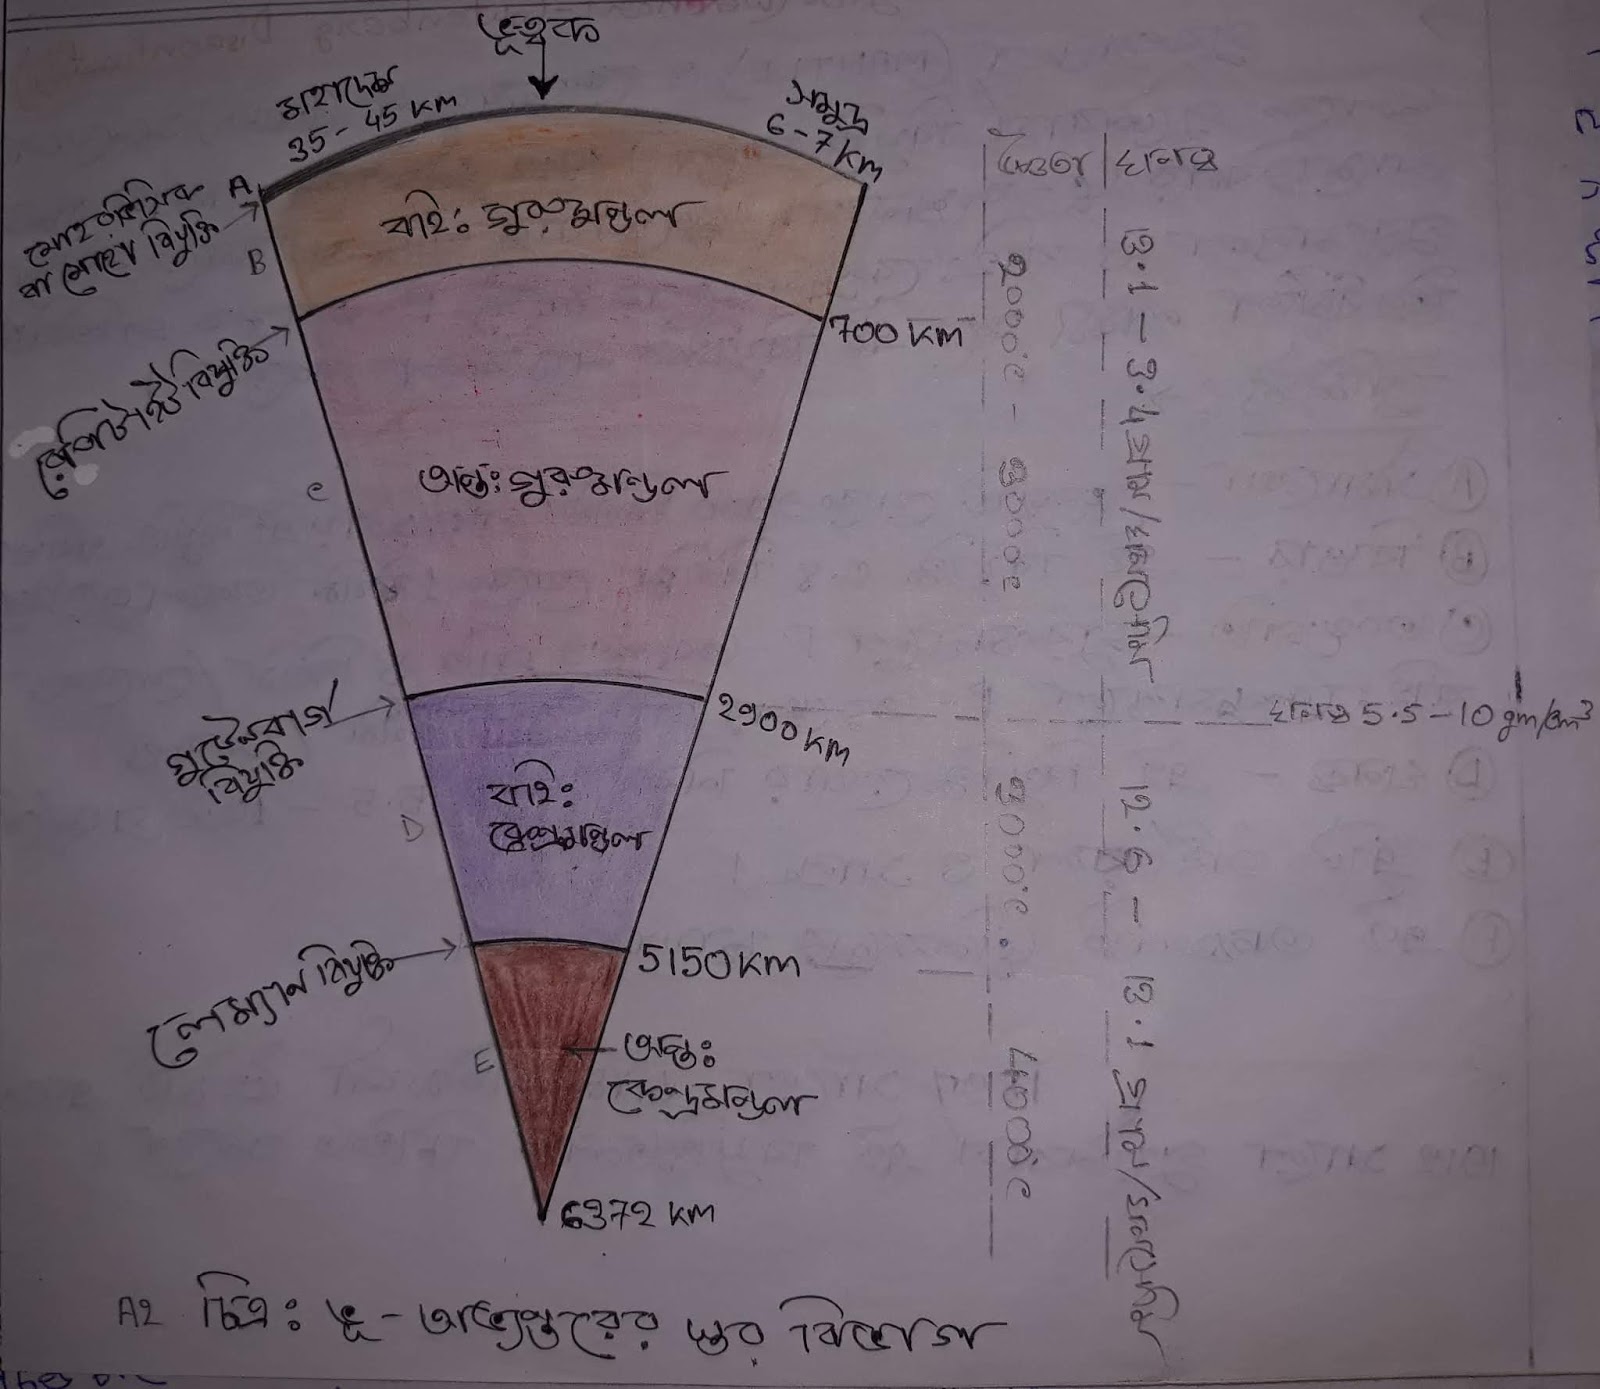 ভূত্বক
মহাদেশ
35 - 45 km
সমুদ্র
6 - 7 km
A
বহিঃ গুরুমণ্ডল
মোহরভিসিক
বা মোহো বিযুক্তি
B
700 km
রেপিটোইট বিযুক্তি
অন্তঃ গুরুমণ্ডল
C
2900 km
গুটেনবার্গ
বিযুক্তি
বহিঃ
কেন্দ্রমণ্ডল
D
5150 km
লেহম্যান বিযুক্তি
অন্তঃ
কেন্দ্রমণ্ডল
E
6372 km
উষ্ণতা
ঘনত্ব
2000°c - 3000°c
3.1 - 3.4 গ্রাম/ঘনসেমি
ঘনত্ব 5.5 - 10 gm/cm³
3000°c
4000°c
12.6 - 13.1 গ্রাম/ঘনসেমি
A2 চিত্র : ভূ - অভ্যন্তরের স্তর বিভাগ